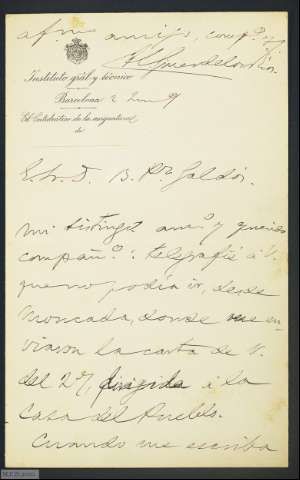 afmo amigo, compº y
Instituto gral. y técnico
Barcelona 2
El Catedrático de la asignatura
de
E. S. D. B. Pz Galdós.
Mi distingº amº y querido
compañº: telegrafié á V.
que no podía ir, desde
Moncada, donde me en-
viaron la carta de V.
del 27, dirigida á la
Casa del Pueblo.
Cuando me escriba